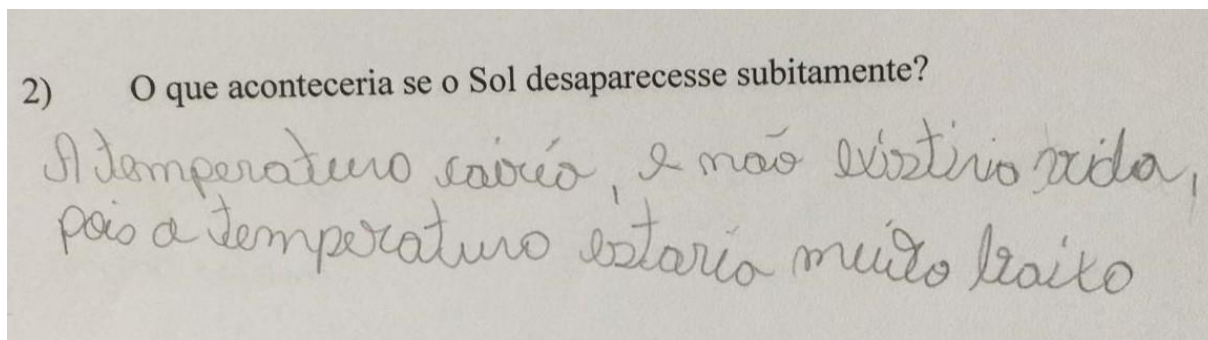 2) O que aconteceria se o Sol desaparecesse subitamente?
A temperatura cairia, e não existiria vida,
pois a temperatura estaria muito baixo